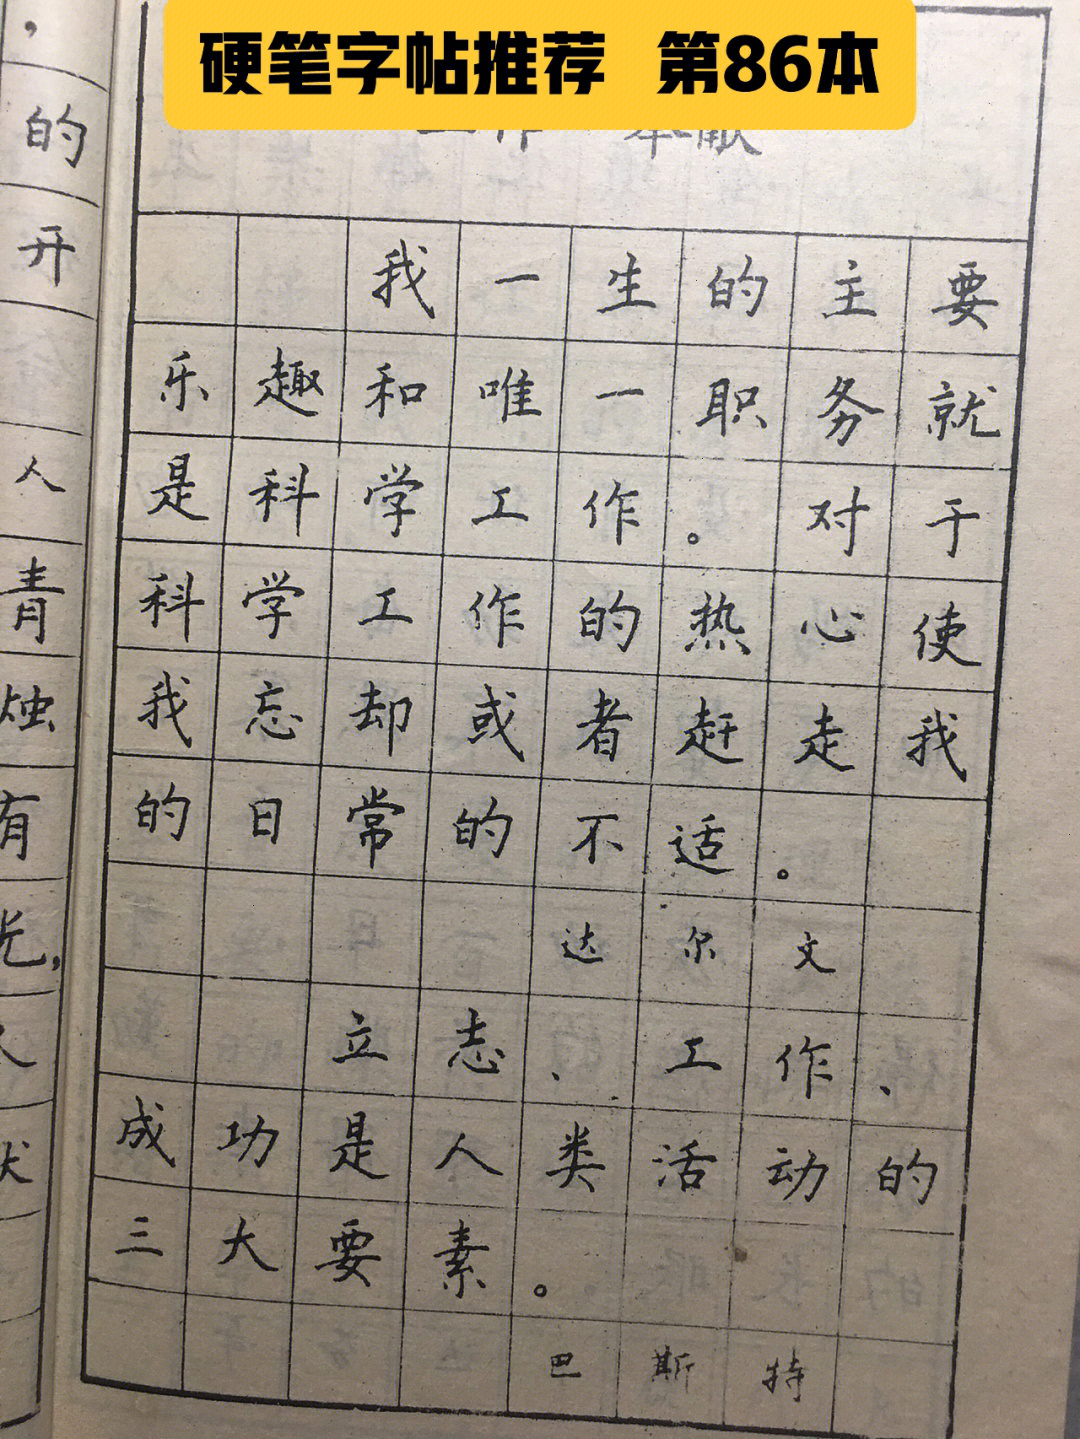 硬笔字帖推荐 第86本
工作 奉献
我一生的主要
乐趣和唯一职务就
是科学工作。对于
科学工作的热心使
我忘却或者赶走我
的日常的不适。
达尔文
立志、工作、
成功是人类活动的
三大要素。
巴斯特
,
的
开
人
青
烛
有
光,